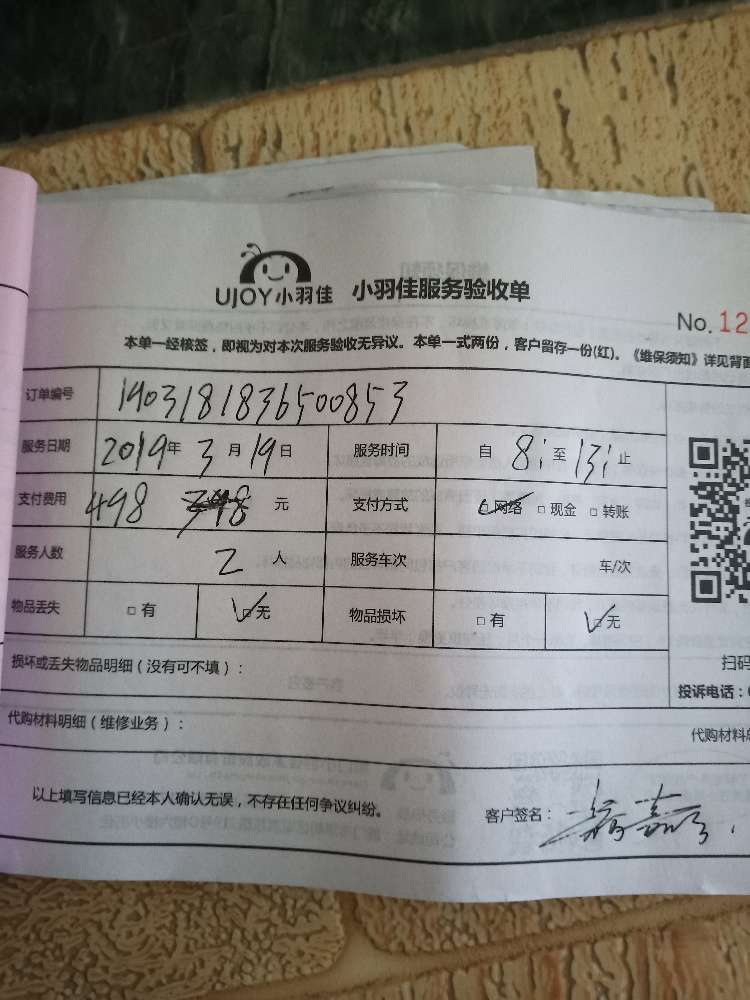 UJOY小羽佳 小羽佳服务验收单
No. 12
本单一经核签，即视为对本次服务验收无异议。本单一式两份，客户留存一份(红)。《维保须知》详见背面
订单编号 1903181836500853
服务日期 2019年 3月 19日 服务时间 自 8: 至 13: 止
支付费用 498 元 支付方式 □网络 □现金 □转账
服务人数 2 人 服务车次 车/次
物品丢失 □有 □无 物品损坏 □有 □无
扫码
损坏或丢失物品明细（没有可不填）：
投诉电话：
代购材料明细（维修业务）：
代购材料总
以上填写信息已经本人确认无误，不存在任何争议纠纷。 客户签名：